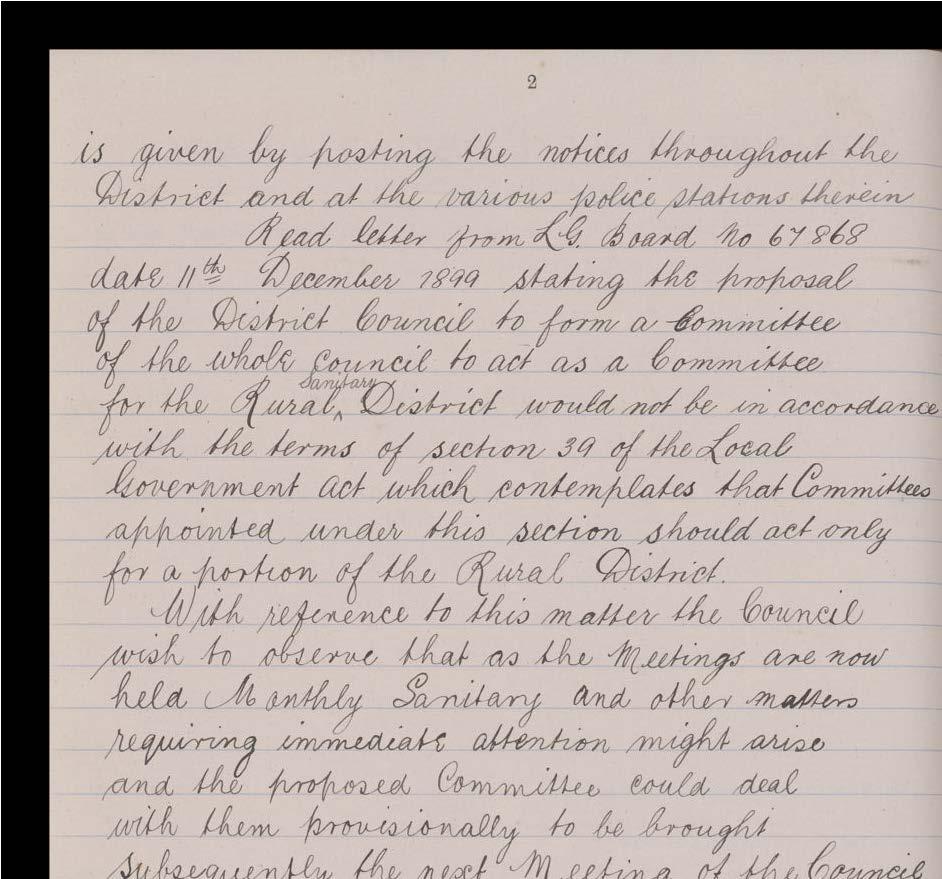 2
is given by posting the notices throughout the
District and at the various police stations therein
Read letter from L.G. Board No 67868
date 11th December 1899 stating the proposal
of the District Council to form a Committee
of the whole council to act as a Committee
Sanitary
for the Rural ^ District would not be in accordance
with the terms of section 39 of the Local
Government Act which contemplates that Committees
appointed under this section should act only
for a portion of the Rural District.
With reference to this matter the Council
wish to observe that as the Meetings are now
held Monthly Sanitary and other matters
requiring immediate attention might arise
and the proposed Committee could deal
with them provisionally to be brought
subsequently the next Meeting of the Council